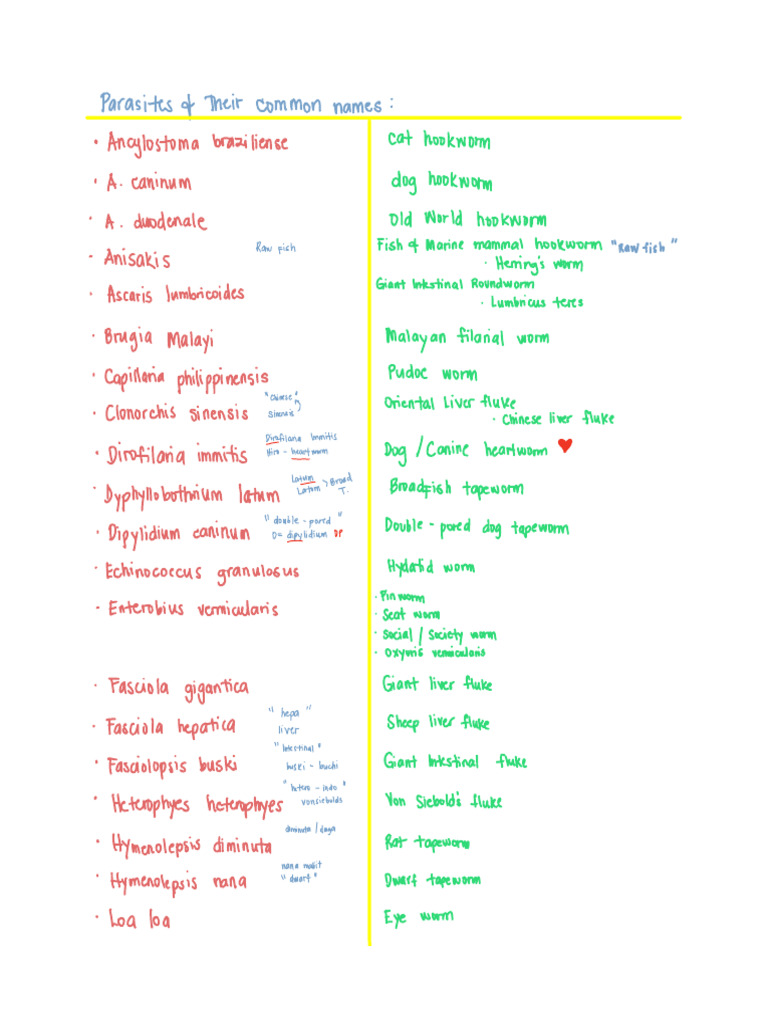 Parasites & Their common names:
• Ancylostoma braziliense
cat hookworm
• A. caninum
dog hookworm
• A. duodenale
Old World hookworm
• Anisakis
Raw fish
Fish & Marine mammal hookworm "Raw fish"
• Herring's worm
• Ascaris lumbricoides
Giant Intestinal Roundworm
• Lumbricus teres
• Brugia Malayi
Malayan filarial worm
• Capillaria philippinensis
Pudoc worm
• Clonorchis sinensis
"Chinese"
Sinensis
Oriental Liver fluke
• Chinese liver fluke
• Dirofilaria immitis
Dirofilaria Immitis
Hiro - heartworm
Dog / Canine heartworm
• Dyphyllobothrium latum
Latum
Latum > Broad T.
Broadfish tapeworm
• Dipylidium caninum
"double - pored"
D= dipylidium DP
Double - pored dog tapeworm
• Echinococcus granulosus
Hydatid worm
• Enterobius vermicularis
• Pinworm
• Seat worm
• Social / Society worm
• Oxyuris vermicularis
• Fasciola gigantica
Giant liver fluke
• Fasciola hepatica
"hepa"
liver
Sheep liver fluke
• Fasciolopsis buski
"Intestinal"
buski - buchi
Giant Intestinal fluke
• Heterophyes heterophyes
"hetero - indo"
vonsiebolds
Von Siebold's fluke
• Hymenolepsis diminuta
diminuta / daga
Rat tapeworm
• Hymenolepsis nana
nana maliit
"dwarf"
Dwarf tapeworm
• Loa loa
Eye worm